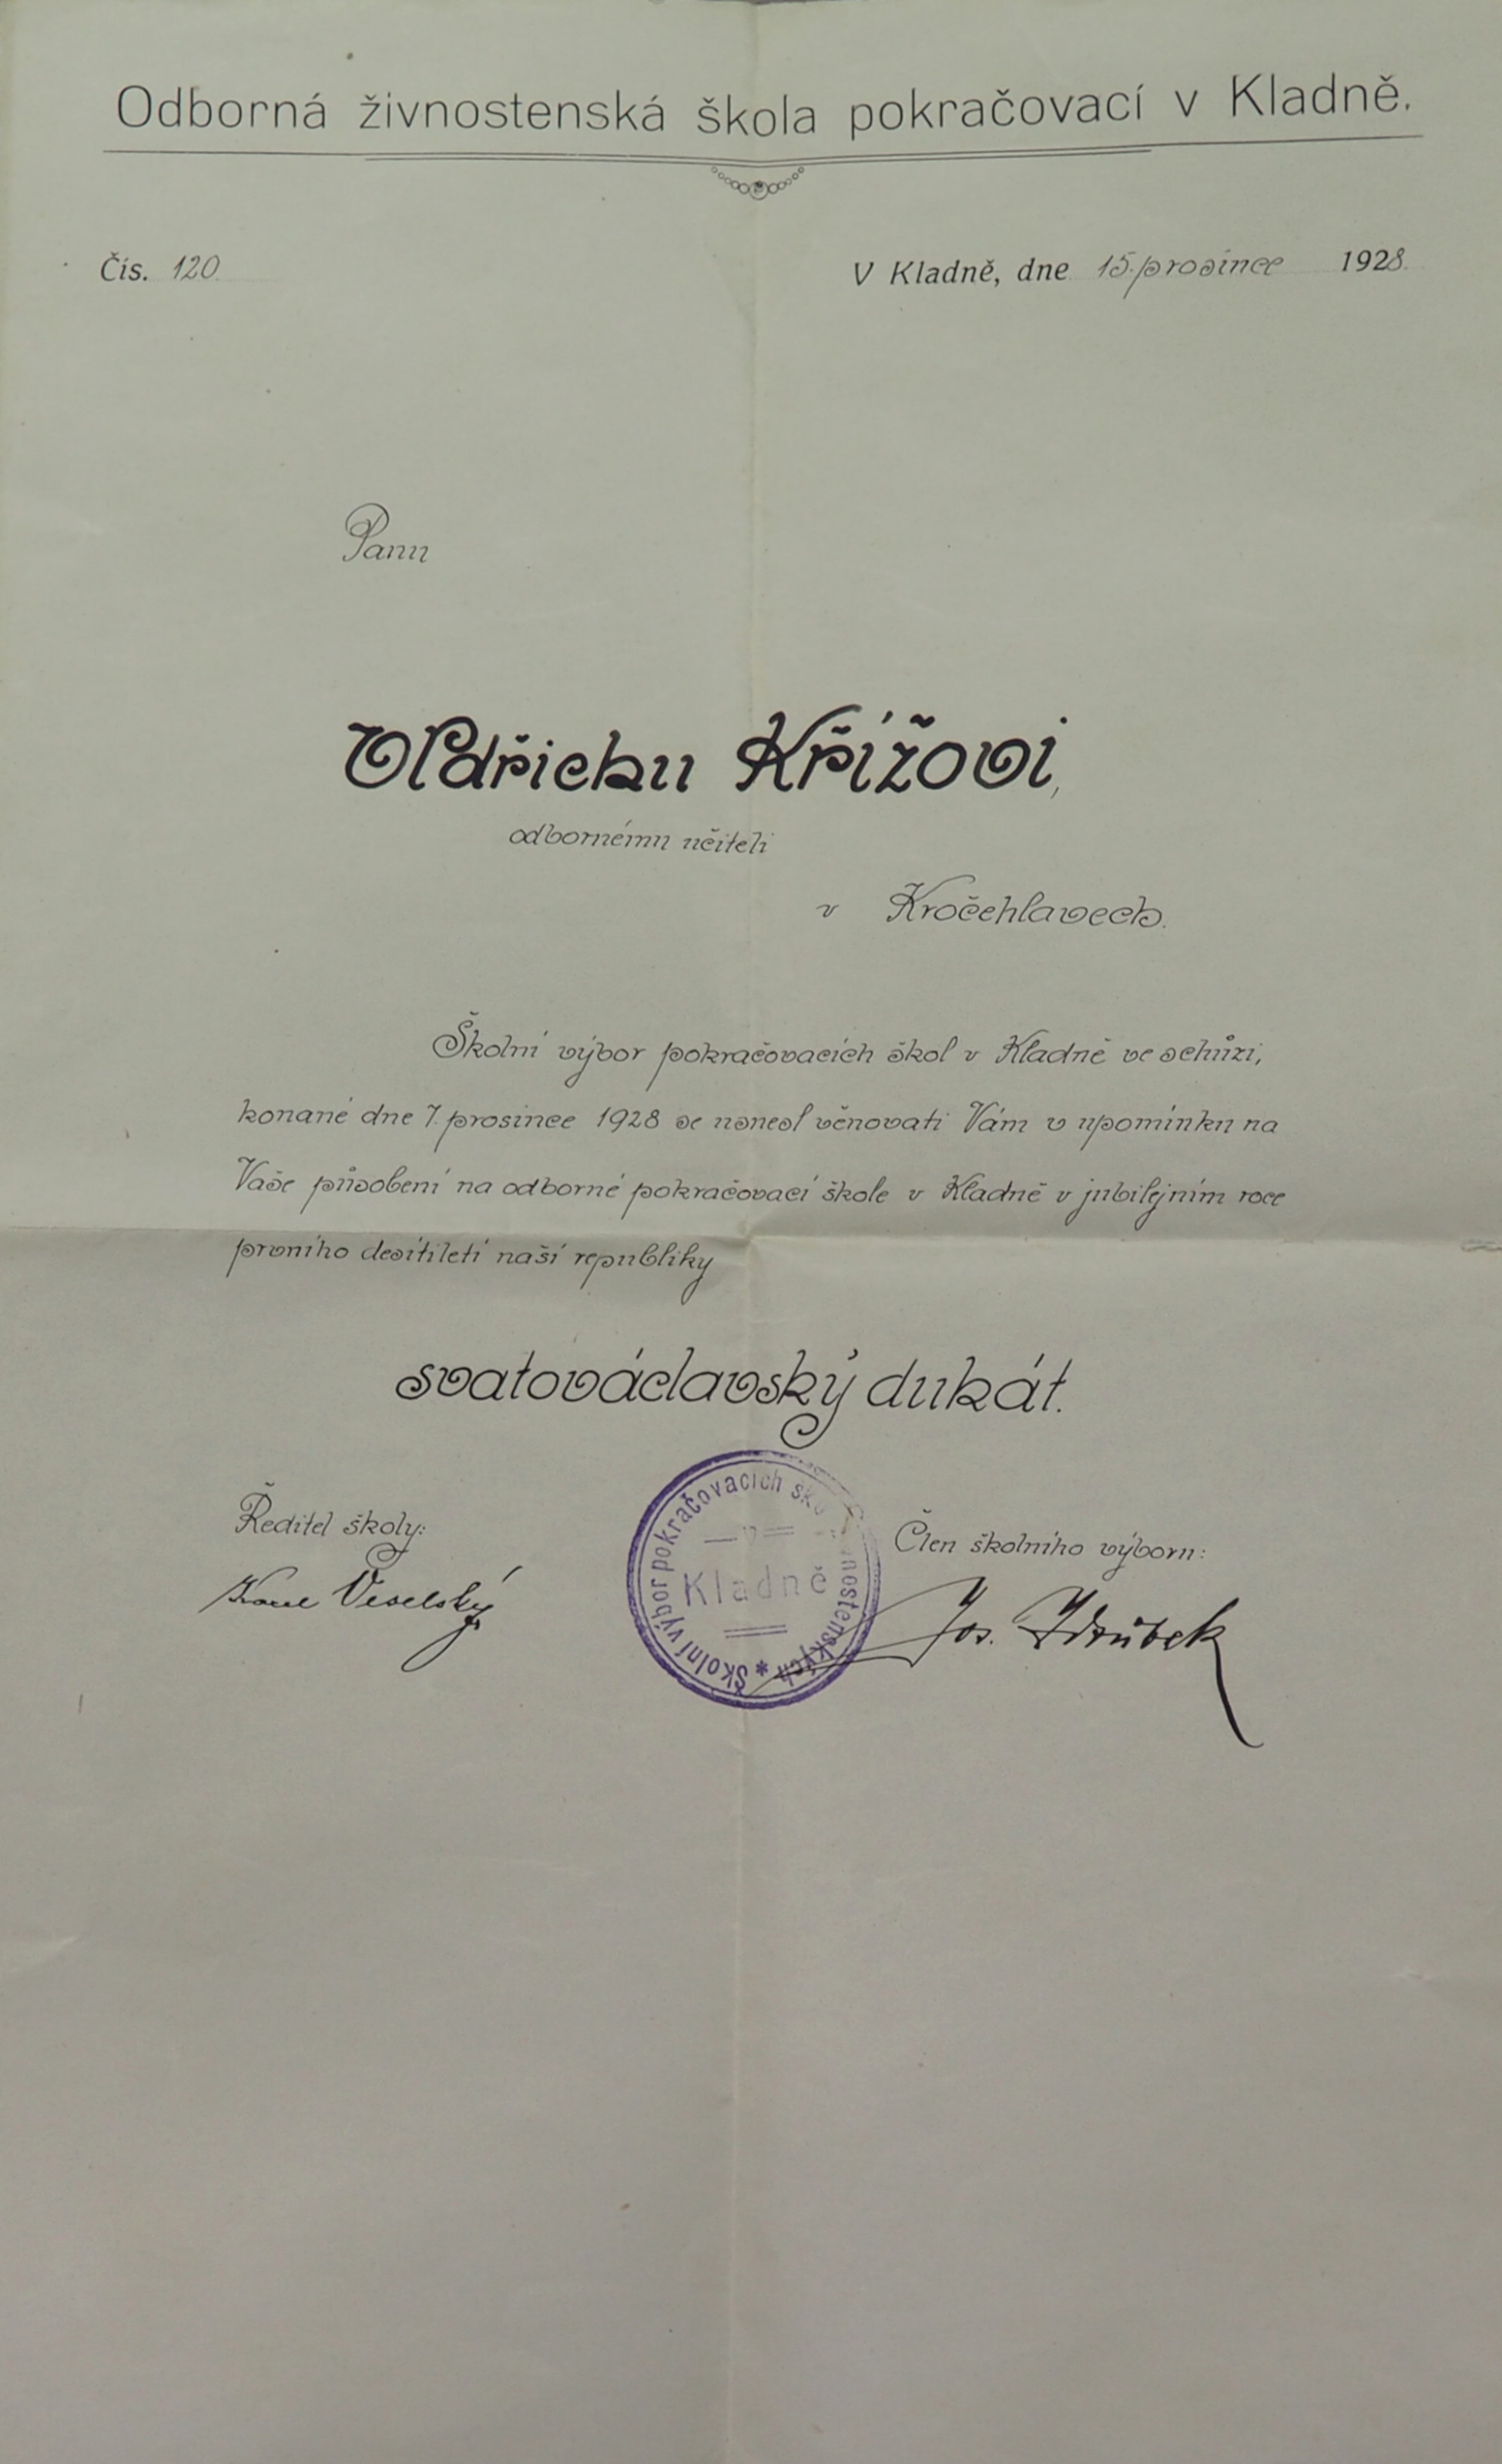 Odborná živnostenská škola pokračovací v Kladně.
Čís. 120.
V Kladně, dne 15. prosince 1928.
Panu
Oldřichu Křížovi,
odbornému učiteli
v Kročehlavech.
Školní výbor pokračovacích škol v Kladně ve schůzi,
konané dne 7. prosince 1928 se usnesl věnovati Vám v upomínku na
Vaše působení na odborné pokračovací škole v Kladně v jubilejním roce
prvního desítiletí naší republiky
svatováclavský dukát.
Ředitel školy:
Člen školního výboru:
Karel Veselský
Jos.
Školní výbor pokračovacích
Kladně